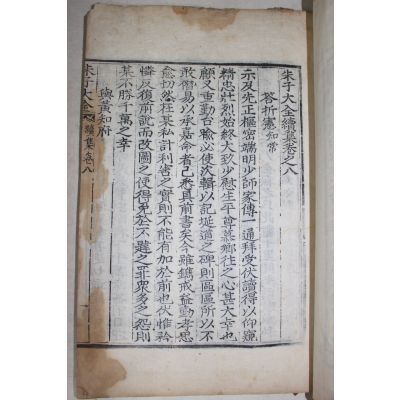 朱子大全續集卷之八
答折憲知常
示及先正樞密端明少師家傳一通拜受伏讀得以仰窺
精忠壯烈始終大致少慰生平尊慕鄉往之心甚大幸也
顧又重勤台喻必使次輯以記埏道之碑則區區所以不
敢僭易以承嘉命者已悉具前書矣今雖鐫戒益勤孝思
愈切然在某私計利害之實則不能有加於前也伏惟矜
憐反復前說而改圖之使得免於不韙之罪衆多之怨則
某不勝千萬之幸
與黃知府
朱子大全 續集卷八